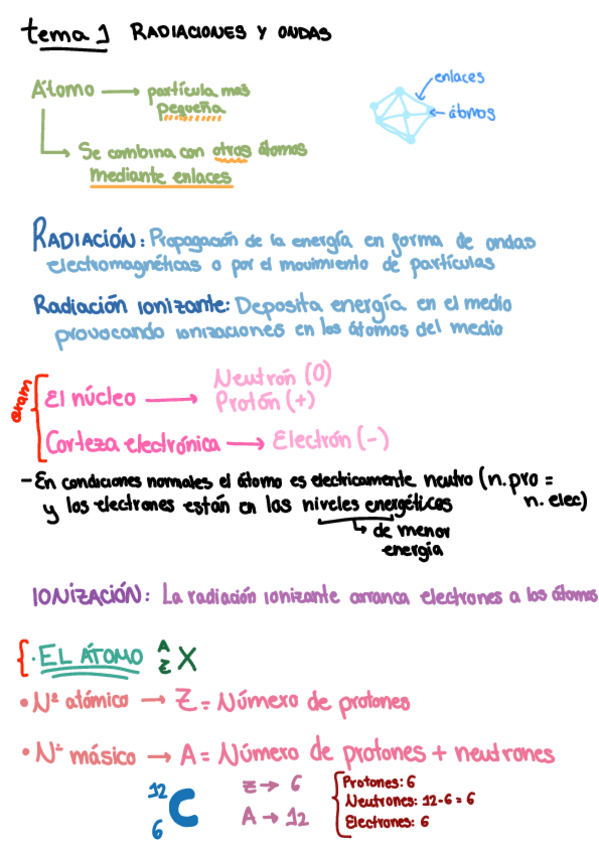 tema 1 RADIACIONES Y ONDAS
Átomo → partícula mas
pequeña
enlaces
átomos
Se combina con otros átomos
Mediante enlaces
RADIACIÓN: Propagación de la energía en forma de ondas
electromagnéticas o por el movimiento de partículas
Radiación ionizante: Deposita energía en el medio
provocando ionizaciones en los átomos del medio
exam
El núcleo → Neutrón (0)
Protón (+)
Corteza electrónica → Electrón (-)
- En condiciones normales el átomo es electricamente neutro (n. pro =
n. elec)
y los electrones están en los niveles energéticos
↳ de menor
energía
IONIZACIÓN: La radiación ionizante arranca electrones a los átomos
{ · EL ÁTOMO A Z X
• Nº atómico → Z = Número de protones
• Nº másico → A = Número de protones + neutrones
12 6 C
Z → 6
A → 12
Protones: 6
Neutrones: 12-6 = 6
Electrones: 6